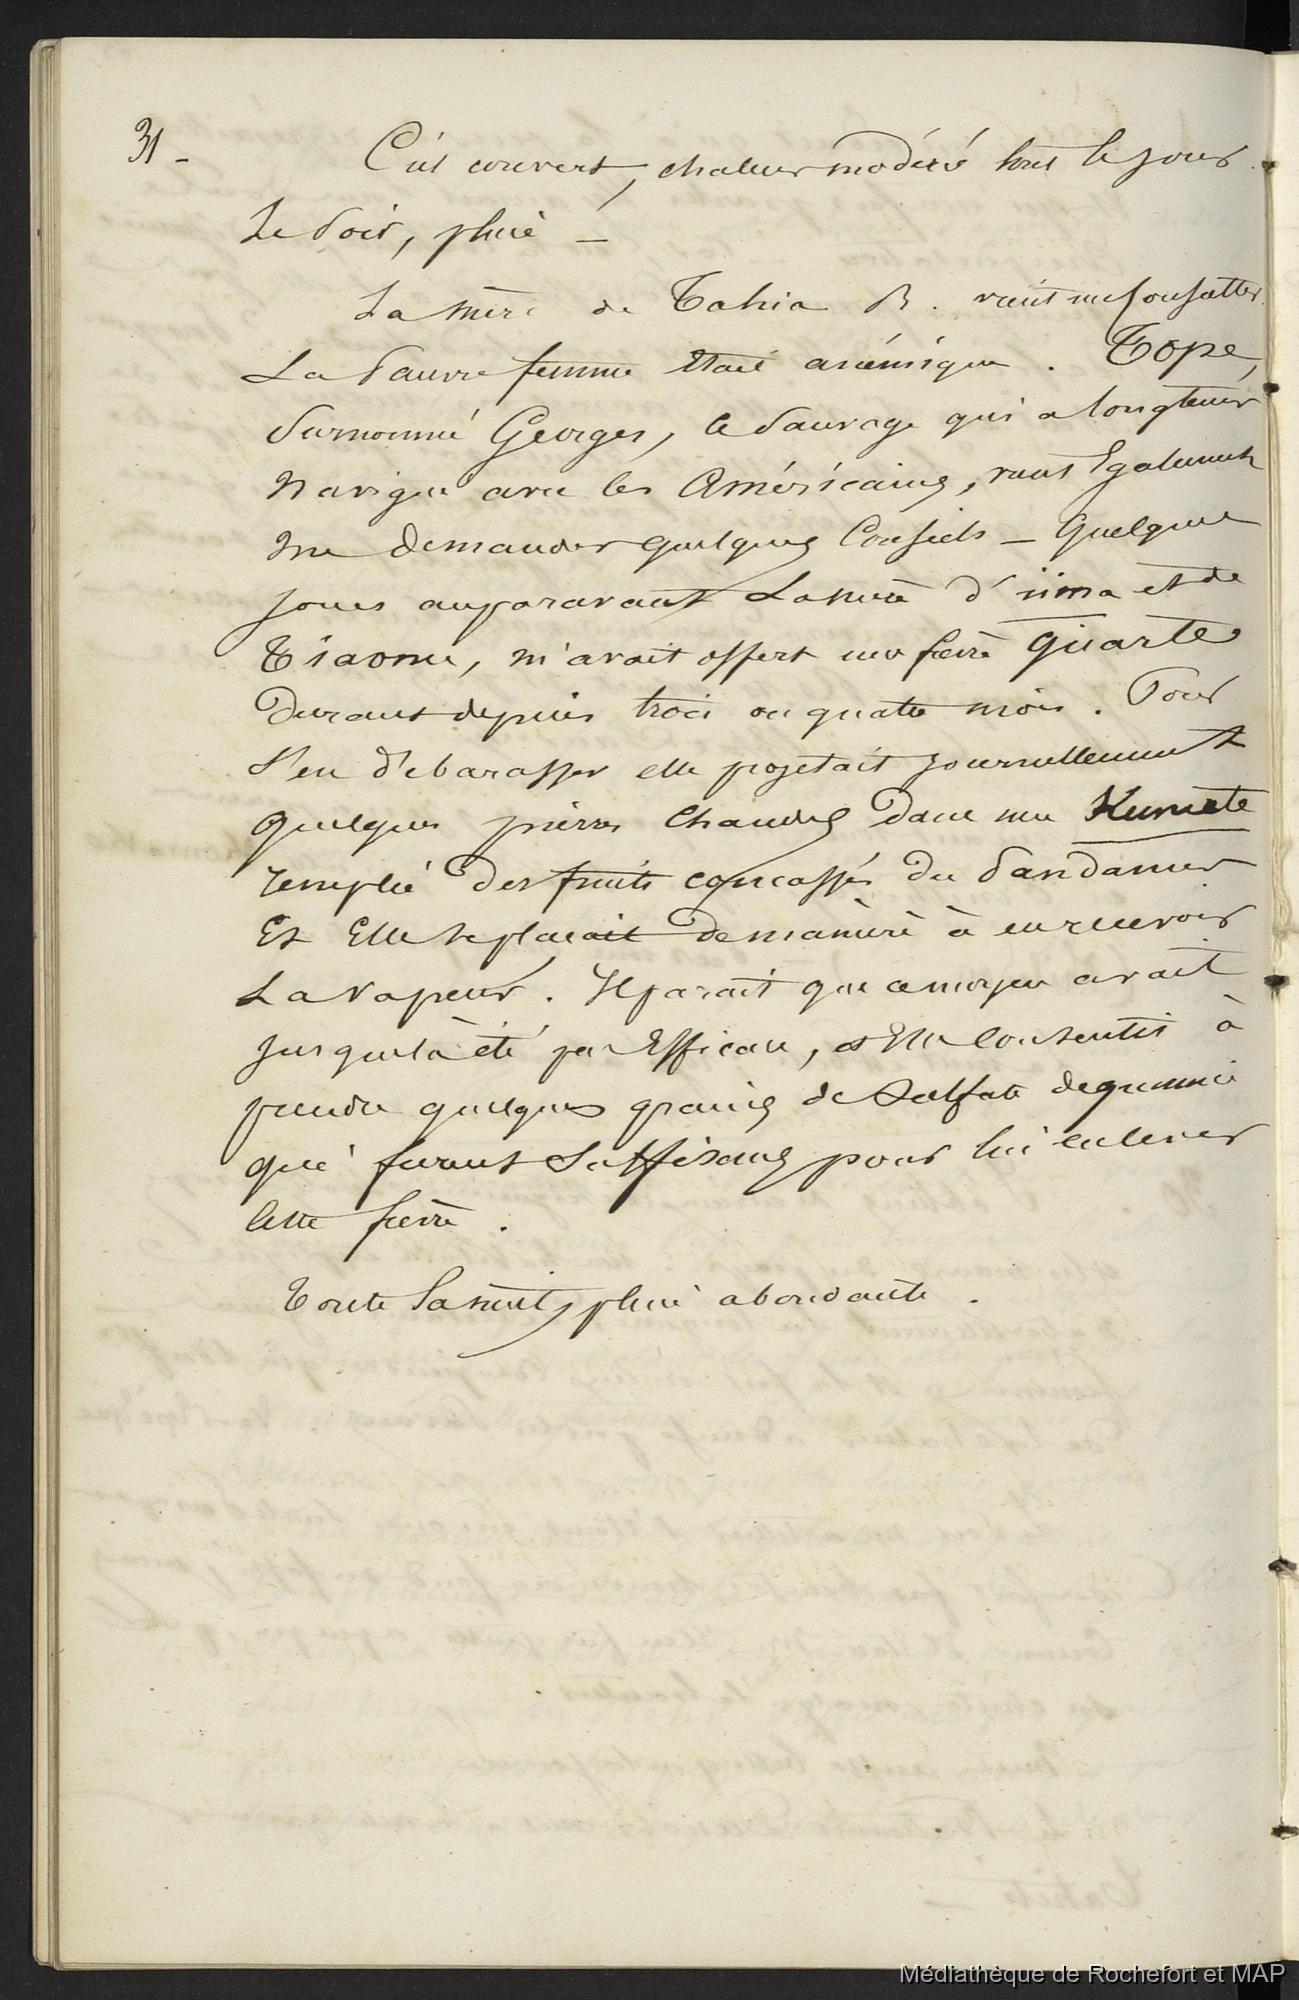 31 -
Ciel couvert, chaleur modéré tout le jour
Le soir, pluie -
La mère de Tahia B. vient me consulter.
La pauvre femme était anémique. Tope,
surnommé Georges, le sauvage qui a longtems
navigué avec les Américains, vient Egalement
me demander quelques Conseils - Quelques
jours auparavant La mère d'iima et de
Tiaome, m'avait offert une fièvre quarte
durant depuis trois ou quatre mois. Pour
s'en débarasser elle projetait journellement
quelques pierres chaudes dans un Kumete
remplie des fruits concassés du Pandanus
Et Elle se plaçait de manière à en recevoir
La vapeur. Il parait que ce moyen avait
jusque là été peu Efficace, et Elle Consentit à
prendre quelques grains de Sulfate de quinine
qui furent Suffisans pour lui enlever
cette fièvre.
Toute la nuit, pluie abondante.
Médiathèque de Rochefort et MAP